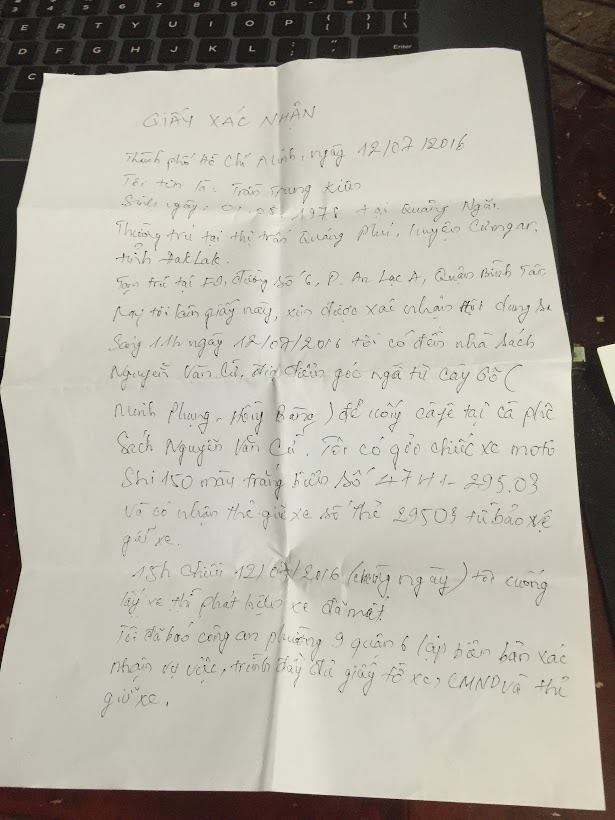 GIẤY XÁC NHẬN
Thành phố Hồ Chí Minh, ngày 12/07/2016
Tôi tên là: Trần Trung Kiên
Sinh ngày: 01.08.1978 tại Quảng Ngãi.
Thường trú tại thị trấn Quảng Phú, huyện Cưmgar,
tỉnh ĐakLak.
Tạm trú tại đường số 6, P. An Lạc A, Quận Bình Tân
Nay tôi làm giấy này, xin được xác nhận nội dung
Sáng 11h ngày 12/07/2016 tôi có đến nhà sách
Nguyễn Văn Cừ, địa điểm góc ngã tư Cây Gõ (
Minh Phụng - Hồng Bàng) để uống cà fê tại cà phê
Sách Nguyễn Văn Cừ. Tôi có gởi chiếc xe moto
Shi 150 màu trắng biển số 47H1-295.03
và có nhận thẻ giữ xe số thẻ 29503 từ bảo vệ
giữ xe.
15h chiều 12/07/2016 (cùng ngày) tôi xuống
lấy xe thì phát hiện xe đã mất.
Tôi đã báo công an phường 9 quận 6 lập biên bản xác
nhận vụ việc, trình đầy đủ giấy tờ xe, CMND và thẻ
giữ xe.